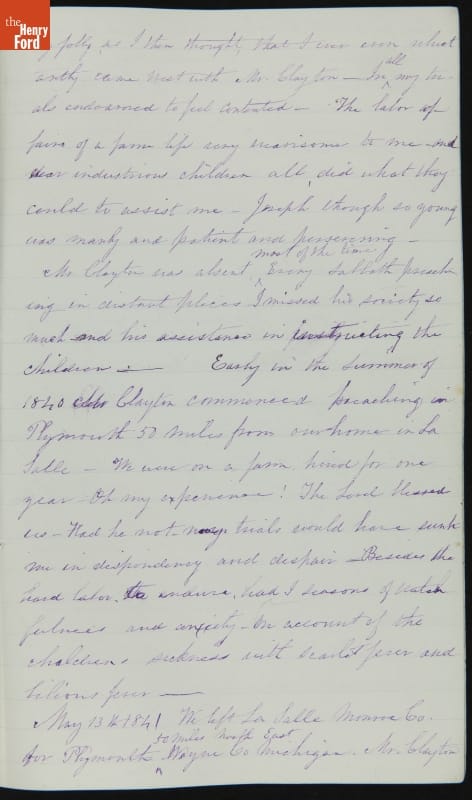 the
Henry
Ford
folly, as I then thought, that I ever even reluct
antly came West with Mr. Clayton – In all my tri
als endeavored to feel contented – The labor af
fairs of a farm life very wearisome to me – and
dear industrious children all did what they
could to assist me – Joseph though so young
was manly and patient and persevering –
Mr. Clayton was absent most of the time, Every Sabbath preach
ing in distant places I missed his society so
much and his assistance in instructing the
children – Early in the summer of
1840 Mr Clayton commenced preaching in
Plymouth 50 miles from our home in La
Salle – We were on a farm hired for one
year – Oh my experience! The Lord blessed
us – Had he not – my trials would have sunk
me in dispondency and despair – Besides the
hard labor, to endure, had I seasons of watch
fulness and anxiety – On account of the
children's sickness with scarlet fever and
billious fever –
May 13th 1841 We left La Salle Monroe Co.
for Plymouth 50 miles North East Wayne Co Michigan. Mr. Clayton